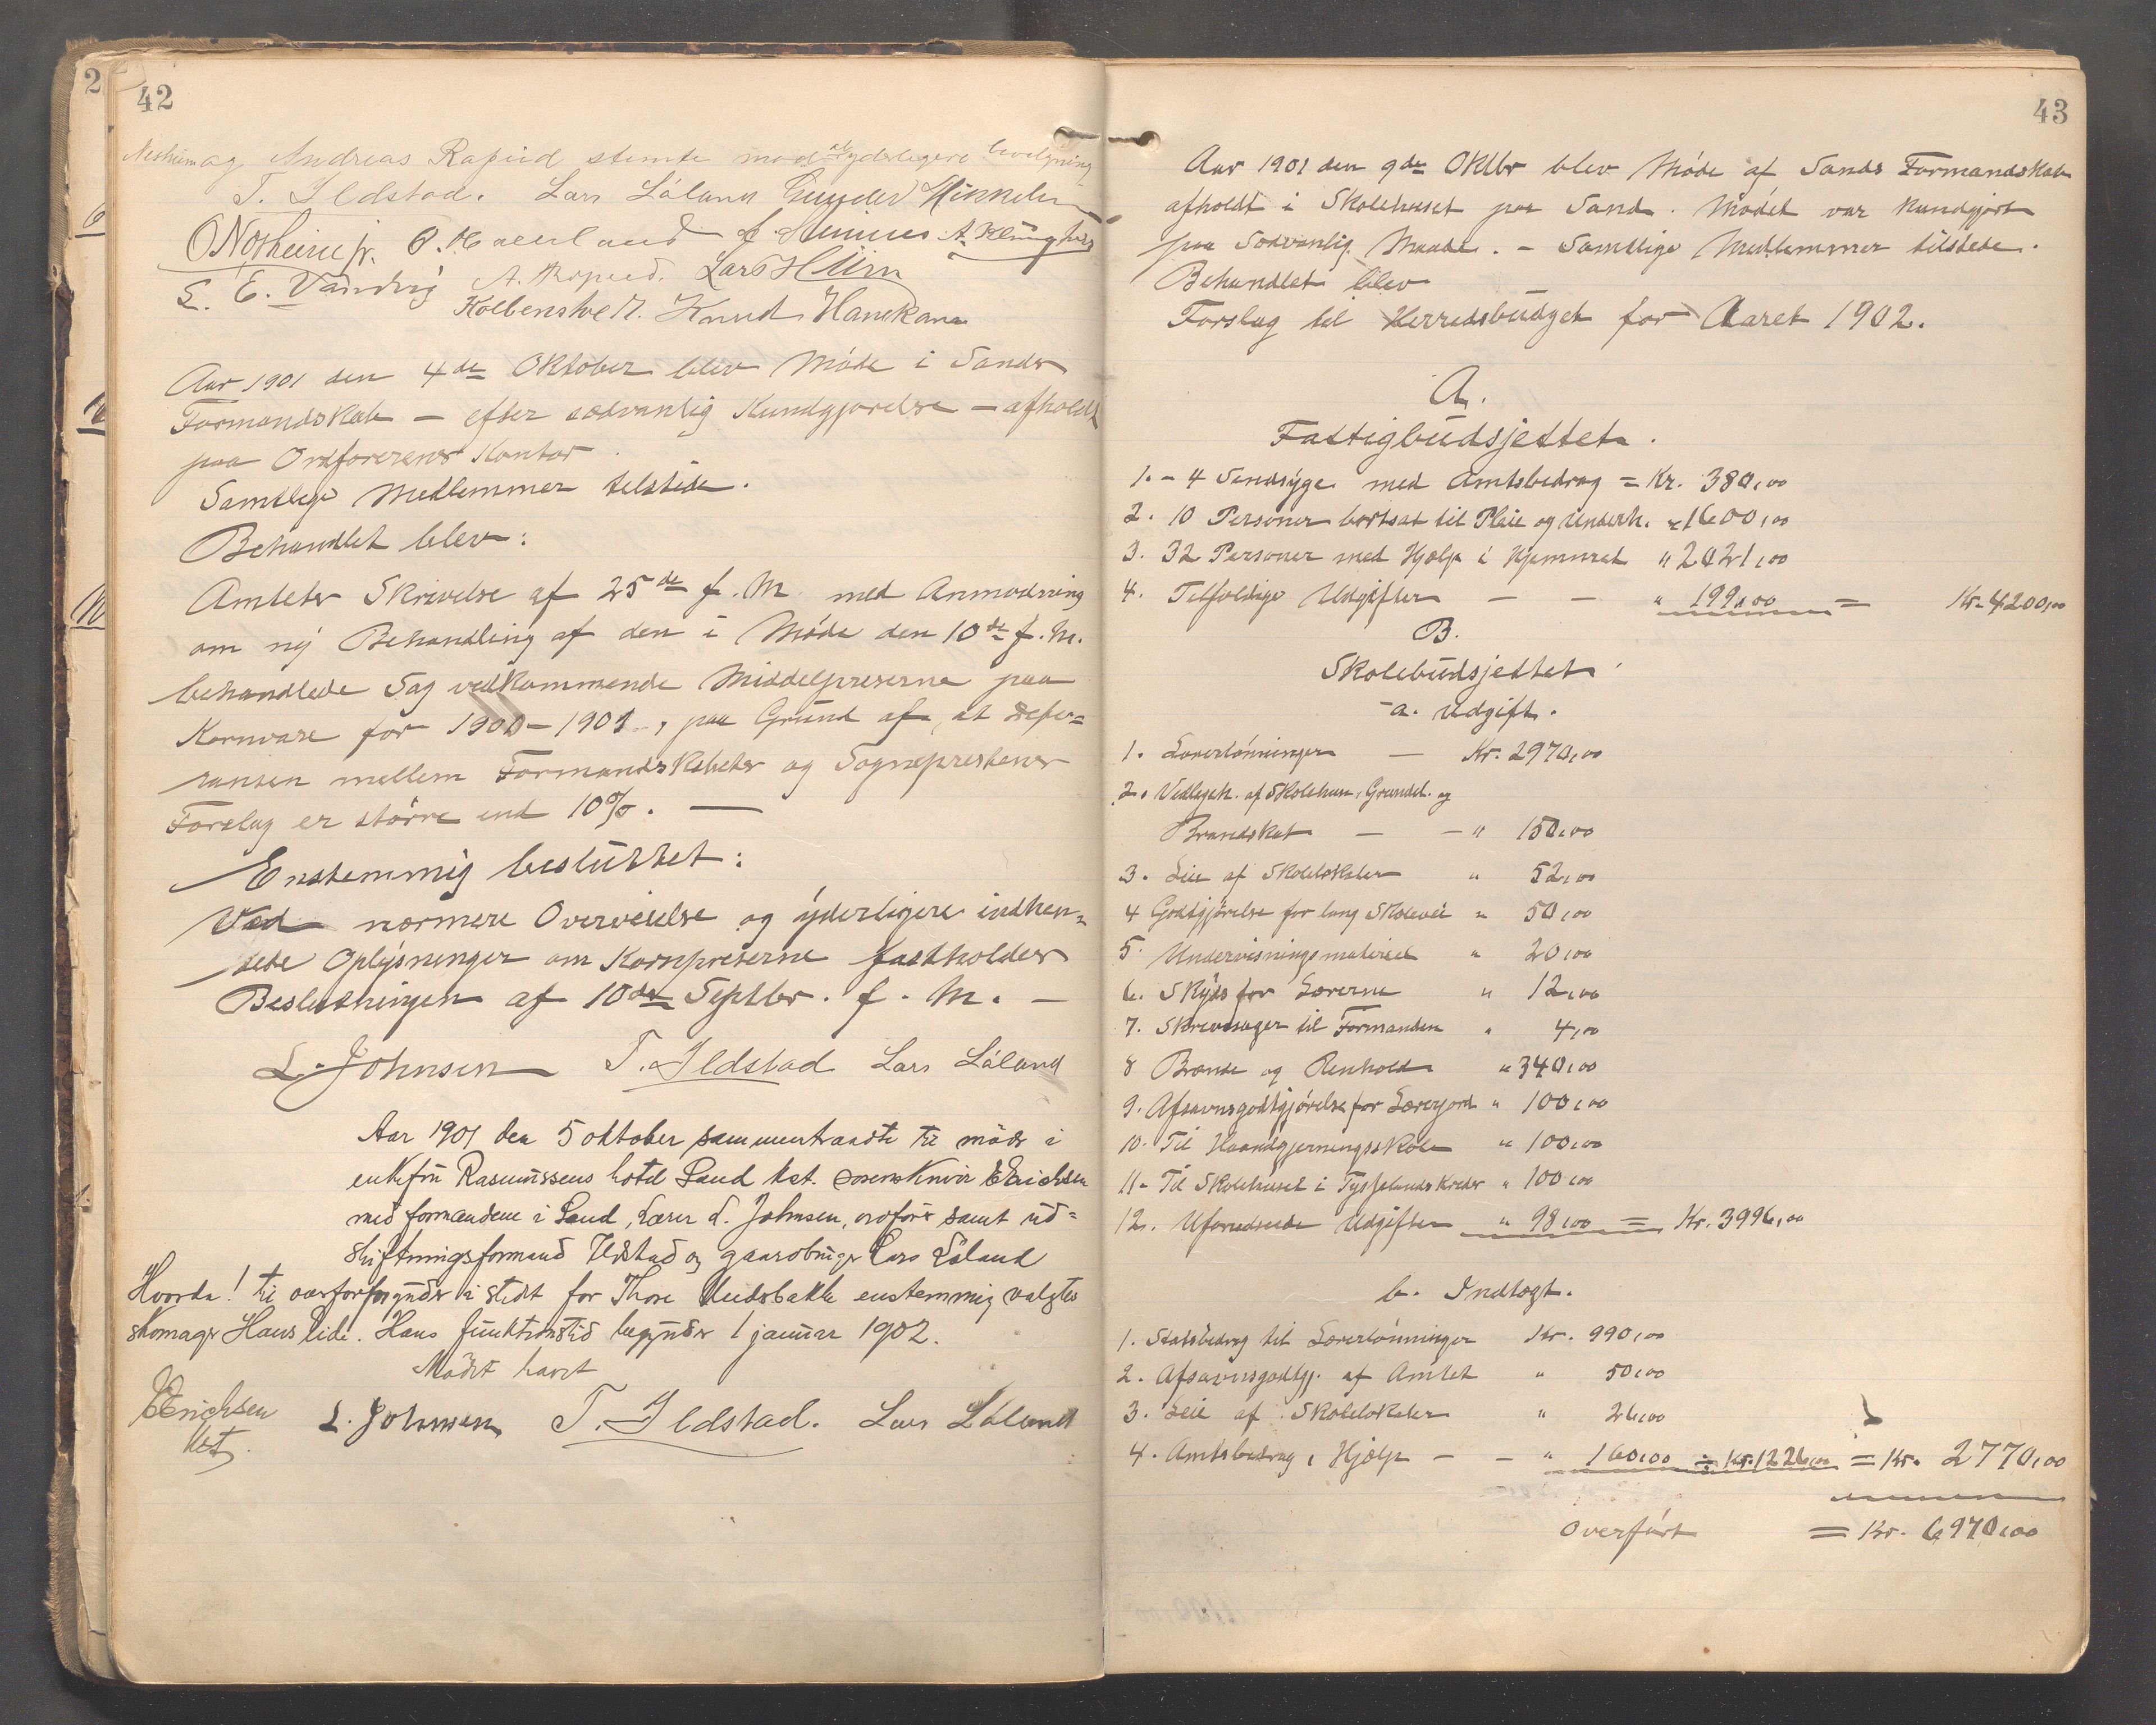 42
og Andreas Rapied stemte mod al yderligere bevilgning
T. Ildstad. Lars Låland Gunder Mikkelsen
O Nesheim jr.
L. E. Vandvig A. Rapied. Lars Hiim
Kolbenstvedt. Knud Hanekam
Aar 1901 den 4de Oktober blev Møde i Sands
Formandskab – efter sædvanlig Kundgjørelse – afholdt
paa Ordførerens Kontor.
Samtlige Medlemmer tilstede.
Behandlet blev:
Amtets Skrivelse af 25de f. M. med Anmodning
om ny Behandling af den i Møde den 10de f. M.
behandlede Sag vedkommende Middelpriserne paa
Kornvare for 1900–1901, paa Grund af, at Defer=
ransen mellem Formandskabets og Sogneprestens
Forslag er større end 10%. —
Enstemmig besluttet:
Ved nærmere Overveielse og yderligere indhen=
tede Oplysninger om Kornpriserne fastholdes
Beslutningen af 10de Septbr. f. M. –
L. Johnsen T. Ildstad Lars Låland
Aar 1901 den 5 oktober sammentraadte til møde i
enkefru Rasmussens hotel Sand kst. sorenskriver E Erichsen
med formændene i Sand, Lærer L. Johnsen, ordfører samt ud=
skiftningsformand Ildstad og gaardbruger Lars Låland
Hvorda! til overformynder i stedet for Thore Kvidsbakke enstemmig valgtes
skomager Hans Lide. Hans funktionstid begynder 1 januar 1902.
Mødet hævet
E Erichsen L. Johnsen T. Ildstad. Lars Låland
kst.
43
Aar 1901 den 9de Oktbr blev Møde af Sands Formandskab
afholdt i Skolehuset paa Sand. Mødet var kundgjort
paa Sædvanlig Maade. – Samtlige Medlemmer tilstede.
Behandlet blev
Forslag til Herredsbudget for Aaret 1902.
A.
Fattigbudsjettet.
1. – 4 Sindsyge med Amtsbedrag = Kr. 380,00
2. 10 Personer bortsat til Pleie og Underh. " 1600,00
3. 32 Personer med Hjælp i Hjemmet " 2021,00
4. Tilfældige Udgifter — — " 199,00 = Kr. 4200,00
B.
Skolebudsjettet.
a. Udgift.
1. Lærerlønninger — Kr. 2970,00
2. Vedligeh. af Skolehus, Grundel. og
Brandskat — – " 150,00
3. Leie af Skolelokaler " 52,00
4 Godtgjørelse for lang Skolevei " 50,00
5. Undervisningsmateriel " 20,00
6. Skyds for Lærerne " 12,00
7. Skrivesager til Formanden " 4,00
8 Brænde og Renhold " 340,00
9. Afsavnsgodtgjørelse for Lærerjord " 100,00
10. Til Haandgjerningsskole " 100,00
11. Til Skolehuset i Tysselands Kreds " 100,00
12. Uforudseede Udgifter " 98,00 = Kr. 3996,00
b. Indtægt.
1. Statsbedrag til Lærerlønninger Kr. 990,00
2. Afsavnsgodtgj. af Amtet " 50,00
3. Leie af Skolelokaler " 26,00
4. Amtsbedrag, Hjælp – – " 160,00 ÷ Kr. 1226,00 = Kr. 2770,00
Overført = Kr. 6970,00